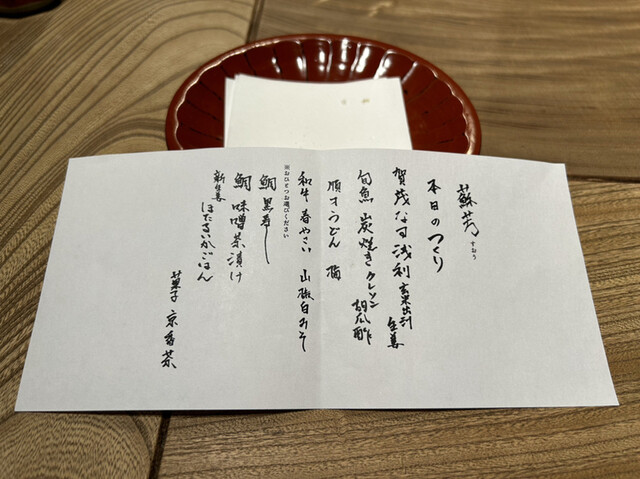 蘇芳
すおう
本日のつくり
賀茂なす 浅利 玄米出汁
生姜
旬魚 炭焼き クレソン
胡瓜酢
うどん 梅
和牛 春やさい 山椒白みそ
※おひとつお選びください
鯛 黒寿し
鯛 味噌茶漬け
新生姜
ほたるいかごはん
菓子 京番茶